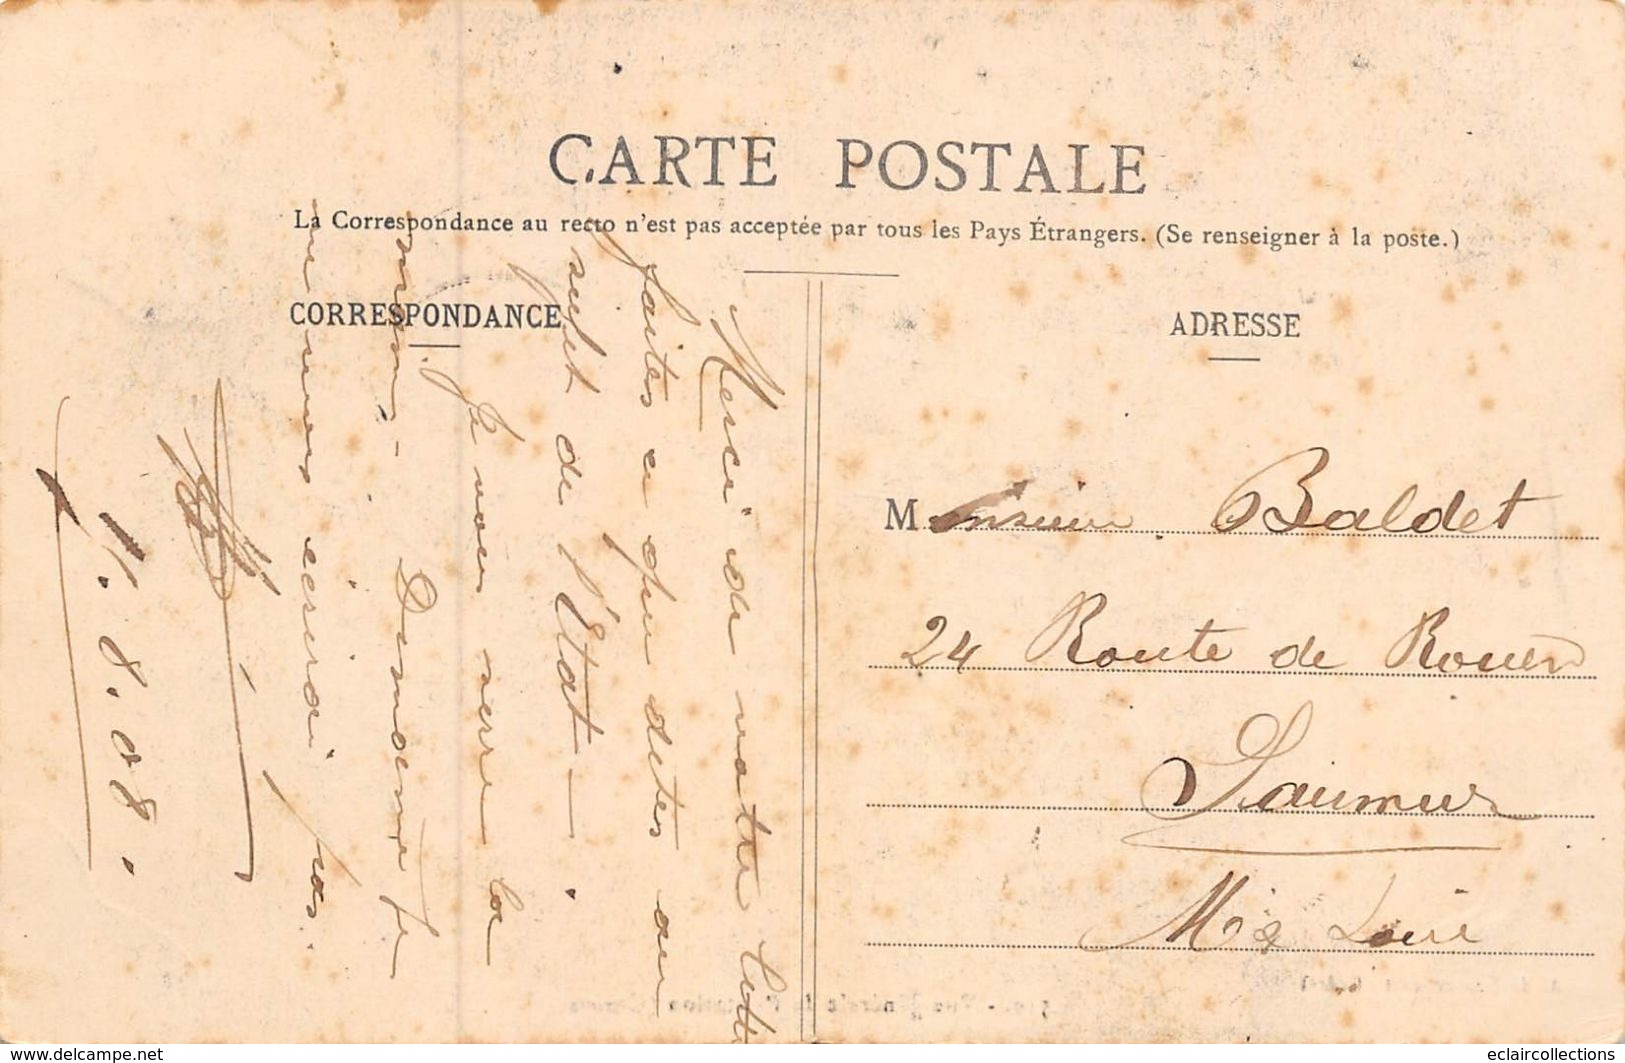 CARTE POSTALE
La Correspondance au recto n'est pas acceptée par tous les Pays Étrangers. (Se renseigner à la poste.)
CORRESPONDANCE
ADRESSE
Merci de votre lettre
faites ce que dites au
sujet de l'État —
Je vous serre la
main - Dimanche je
ne vous écrirai pas.
1. 8. 08.
Monsieur Baldet
24 Route de Rouen
Saumur
M & Loire
www.delcampe.net
eclaircollections